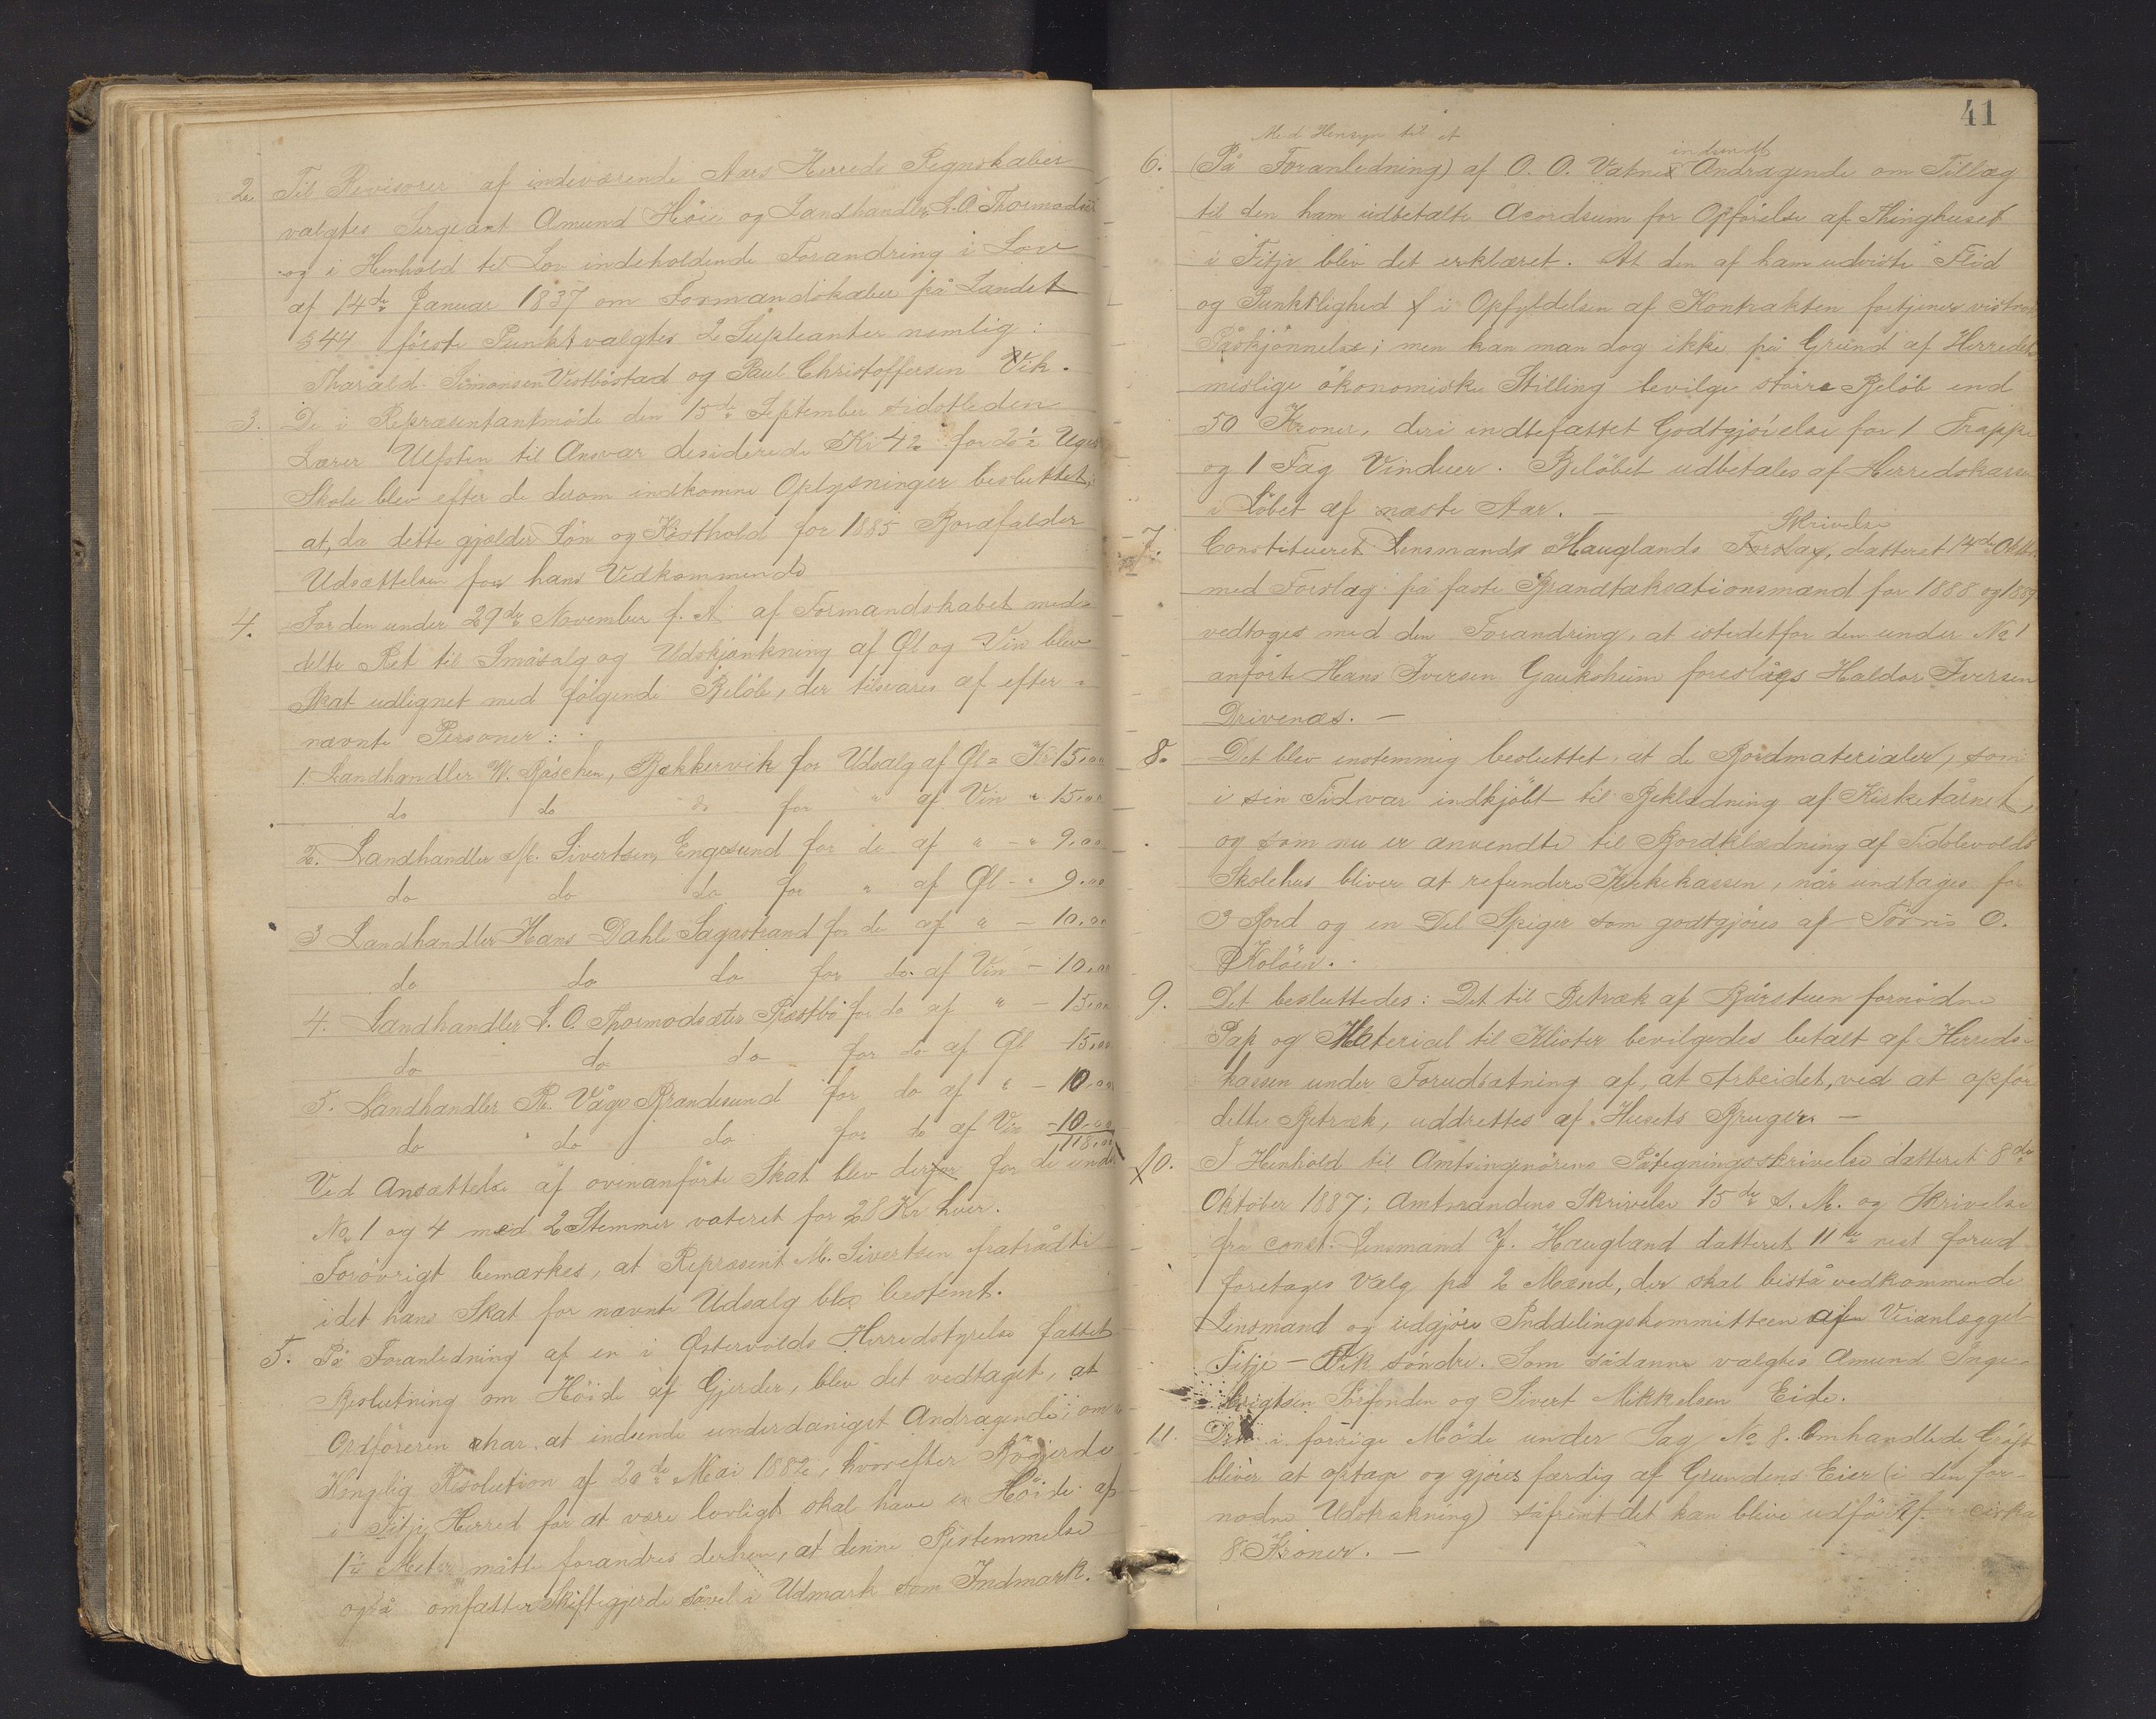 2. Til Revisorer af indeværende Aars Herreds Regnskaber
valgtes Sergeant Amund Höie og Landhandler L. O. Thormodsæter
og i Henhold til Lov indeholdende Forandring i Lov
af 14de Januar 1837 om Formandskaber på Landet
§ 44 förste Punkt valgtes 2 Supleanter nemlig:
Tharald Simonsen Vestböstad og Paul Christoffersen Vik.
3. De i Repræsentantmöde den 15de September sidstleden
Lærer Ulfsten til Ansvar desiderede Kr 42 for Uges
Skole blev efter de derom indkomne Oplysninger besluttet,
at, da dette gjælder Lön og Kosthold for 1885 Bortfalder
Udsættelsen for hans Vedkommende
4. For den under 29de November f. A. af Formandskabet med-
delte Ret til Småsalg og Udskjænkning af Øl og Vin blev
Skat udlignet med følgende Beløb, der tilsvares af efter-
nævnte Personer:
1. Landhandler W. Räschen, Bækkervik for Udsalg af Øl = Kr 15,00
do do do for " af Vin " 15,00
2. Landhandler M. Sivertsen, Engesund for do af " - " 9,00
do do do for " af Øl - " 9,00
3 Landhandler Hans Dahle Sagastrand for do af " - 10,00
do do do for do. af Vin - 10,00
4. Landhandler L. O. Thormodsæter Præstbö for do af " - 15,00
do do do for do af Øl 15,00
5. Landhandler R. Våge Brandesund for do af " - 10,00
do do do for do af Vin - 10,00
118,00
Ved Ansættelse af ovenanförte Skat blev derfor for de under
No 1 og 4 med 2 Stemmer voteret for 28 Kr hver.
Forövrigt bemærkes, at Repræsent M. Sivertsen fratrådte
idet hans Skat for nævnte Udsalg blev bestemt.
5. På Foranledning af en i Østervolds Herredstyrelse fattet
Beslutning om Höide af Gjerder, blev det vedtaget, at
Ordföreren har at indsende underdanigst Andragende; om
Kongelig Resolution af 20de Mai 1882, hvorefter Rögjerde
i Fitje Herred for at være lovligt skal have en Höide af
1 Meter måtte forandres derhen, at denne Bestemmelse
også omfatter Skiftegjerde såvel i Udmark som Indmark.
41
Med Hensyn til et
indsendt
6. (På Foranledning) af O. O. Vatne Andragende om Tillæg
til den ham udbetalte Acordsum for Opförelse af Thinghuset
i Fitje blev det erklæret. At den af ham udviste Flid
og Punktlighed i Opfyldelsen af Kontrakten fortjener vistnok
Påskjönnelse; men kan man dog ikke på Grund af Herredets
mislige ökonomiske Stilling bevilge större Belöb end
50 Kroner, deri indbefattet Godtgjörelse for 1 Trappe
og 1 Fag Vinduer. Belöbet udbetales af Herredskassen
i Löbet af næste Aar. —
Skrivelse
7. Constitueret Lensmands Hauglands Forslag, datteret 14de Oktbr
med Forslag på faste Brandtaksationsmænd for 1888 og 1889
vedtoges med den Forandring, at istedetfor den under No 1
anförte Hans Iversen Gauksheim foreslåes Haldor Iversen
Drivenæs. —
8. Det blev enstemmig besluttet, at de Bordmaterialer, som
i sin Tid var indkjöbt til Beklædning af Kirketårnet,
og som nu er anvendte til Bordklædning af Fidslevolds
Skolehus bliver at refundere Kirkekassen, når undtages for
3 Bord og en Del Spiger som godtgjöres af Törris O.
Koløen.
9. Det besluttedes: Det til Betræk af Bårstuen fornödne
Pap og Material til Klister bevilgedes betalt af Herreds-
kassen under Forudsætning af, at Arbeidet, ved at opföre
dette Betræk, uddrettes af Husets Bruger. —
10. I Henhold til Amtsingeniörens Påtegningsskrivelse datteret 8de
Oktober 1887; Amtmandens Skrivelse 15de s. M. og Skrivelse
fra const. Lensmand J. Haugland datteret 11te nest forud
foretages Valg på 2 Mænd, der skal bistå vedkommende
Lensmand og udgjöre Inddelingskommitteen af Veianlægget
Fitje - Vik söndre. Som sådanne valgtes Amund Inge-
brigtsen Sörfonden og Sivert Mikkelsen Eide.
11. Den i forrige Möde under Sag No 8. Omhandlede Gröft
bliver at optage og gjöres færdig af Grundens Eier (i den for-
nödne Udstrækning) såfremt det kan blive udfört for cirka
8 Kroner. —